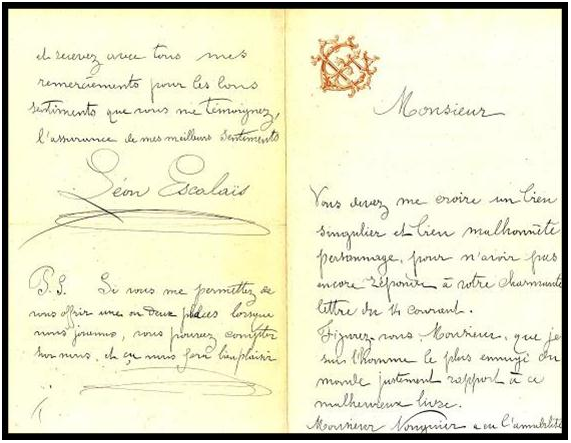 et recevez avec tous mes
remerciements pour les bons
sentiments que vous me témoignez,
l'assurance de mes meilleurs sentiments
Léon Escalaïs
P.S. Si vous me permettez de
vous offrir une ou deux places lorsque
nous jouerons, vous pouvez compter
sur nous, et ça nous fera bien plaisir
Monsieur
Vous devez me croire un bien
singulier et bien malhonnête
personnage, pour n'avoir pas
encore répondu à votre charmante
lettre du 14 courant.
Figurez-vous Monsieur, que je
suis l'homme le plus ennuyé du
monde justement rapport à ce
malheureux livre.
Monsieur a eu l'amabilité